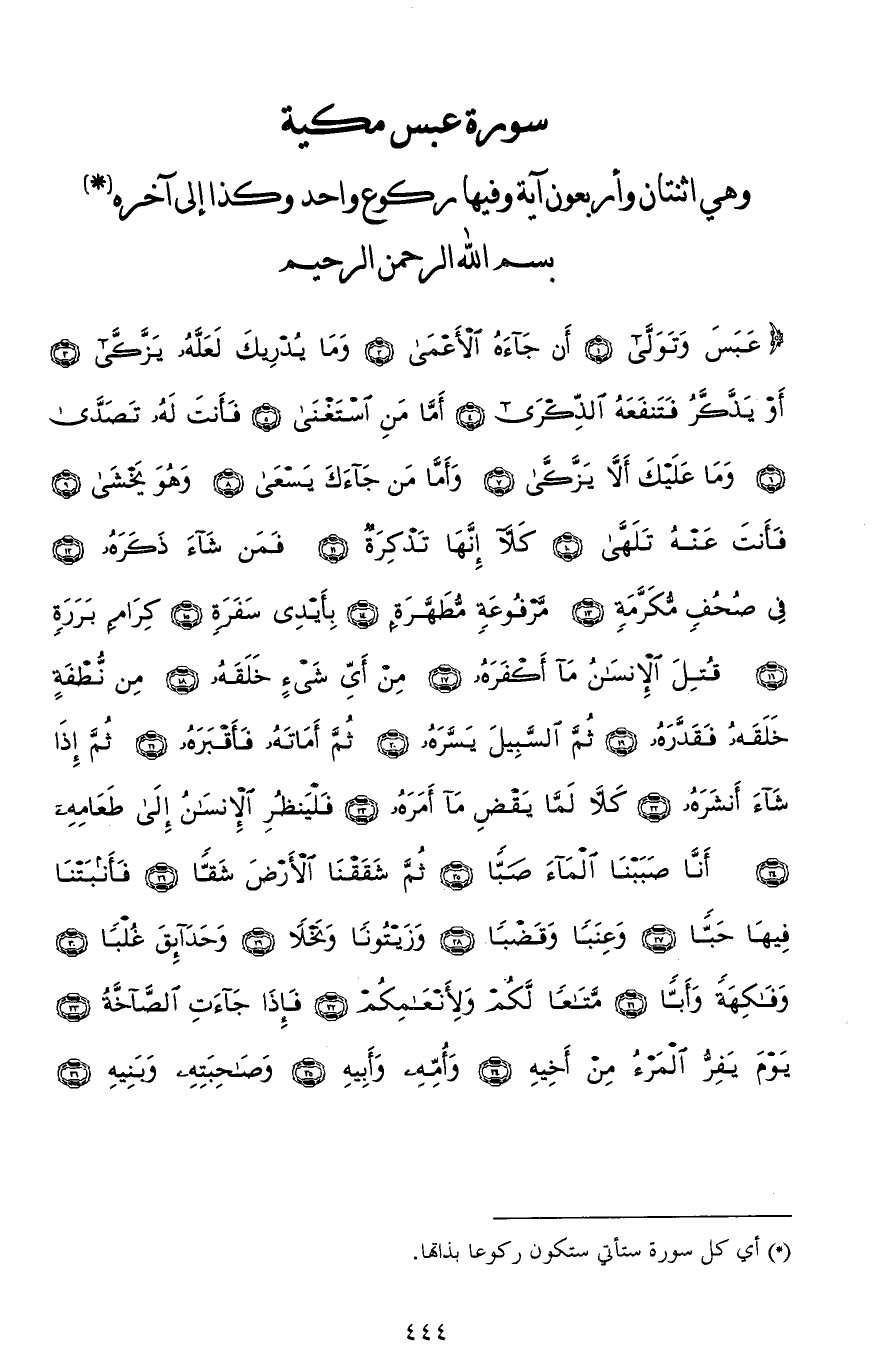 سورة عبس مكية
وهي اثنتان وأربعون آية وفيها ركوع واحد وكذا إلى آخره(*)
بسم الله الرحمن الرحيم
﴿ عَبَسَ وَتَوَلَّىٰٓ ۝١ أَن جَآءَهُ ٱلْأَعْمَىٰ ۝٢ وَمَا يُدْرِيكَ لَعَلَّهُۥ يَزَّكَّىٰٓ ۝٣
أَوْ يَذَّكَّرُ فَتَنفَعَهُ ٱلذِّكْرَىٰٓ ۝٤ أَمَّا مَنِ ٱسْتَغْنَىٰ ۝٥ فَأَنتَ لَهُۥ تَصَدَّىٰ
۝٦ وَمَا عَلَيْكَ أَلَّا يَزَّكَّىٰ ۝٧ وَأَمَّا مَن جَآءَكَ يَسْعَىٰ ۝٨ وَهُوَ يَخْشَىٰ ۝٩
فَأَنتَ عَنْهُ تَلَهَّىٰ ۝١٠ كَلَّآ إِنَّهَا تَذْكِرَةٌ ۝١١ فَمَن شَآءَ ذَكَرَهُۥ ۝١٢
فِى صُحُفٍ مُّكَرَّمَةٍ ۝١٣ مَّرْفُوعَةٍ مُّطَهَّرَةٍۭ ۝١٤ بِأَيْدِى سَفَرَةٍ ۝١٥ كِرَامٍۭ بَرَرَةٍ
۝١٦ قُتِلَ ٱلْإِنسَـٰنُ مَآ أَكْفَرَهُۥ ۝١٧ مِنْ أَىِّ شَىْءٍ خَلَقَهُۥ ۝١٨ مِن نُّطْفَةٍ
خَلَقَهُۥ فَقَدَّرَهُۥ ۝١٩ ثُمَّ ٱلسَّبِيلَ يَسَّرَهُۥ ۝٢٠ ثُمَّ أَمَاتَهُۥ فَأَقْبَرَهُۥ ۝٢١ ثُمَّ إِذَا
شَآءَ أَنشَرَهُۥ ۝٢٢ كَلَّا لَمَّا يَقْضِ مَآ أَمَرَهُۥ ۝٢٣ فَلْيَنظُرِ ٱلْإِنسَـٰنُ إِلَىٰ طَعَامِهِۦٓ
۝٢٤ أَنَّا صَبَبْنَا ٱلْمَآءَ صَبًّا ۝٢٥ ثُمَّ شَقَقْنَا ٱلْأَرْضَ شَقًّا ۝٢٦ فَأَنۢبَتْنَا
فِيهَا حَبًّا ۝٢٧ وَعِنَبًا وَقَضْبًا ۝٢٨ وَزَيْتُونًا وَنَخْلًا ۝٢٩ وَحَدَآئِقَ غُلْبًا ۝٣٠
وَفَـٰكِهَةً وَأَبًّا ۝٣١ مَّتَـٰعًا لَّكُمْ وَلِأَنْعَـٰمِكُمْ ۝٣٢ فَإِذَا جَآءَتِ ٱلصَّآخَّةُ ۝٣٣
يَوْمَ يَفِرُّ ٱلْمَرْءُ مِنْ أَخِيهِ ۝٣٤ وَأُمِّهِۦ وَأَبِيهِ ۝٣٥ وَصَـٰحِبَتِهِۦ وَبَنِيهِ ۝٣٦
(*) أي كل سورة ستأتي ستكون ركوعا بذاتها.
٤٤٤